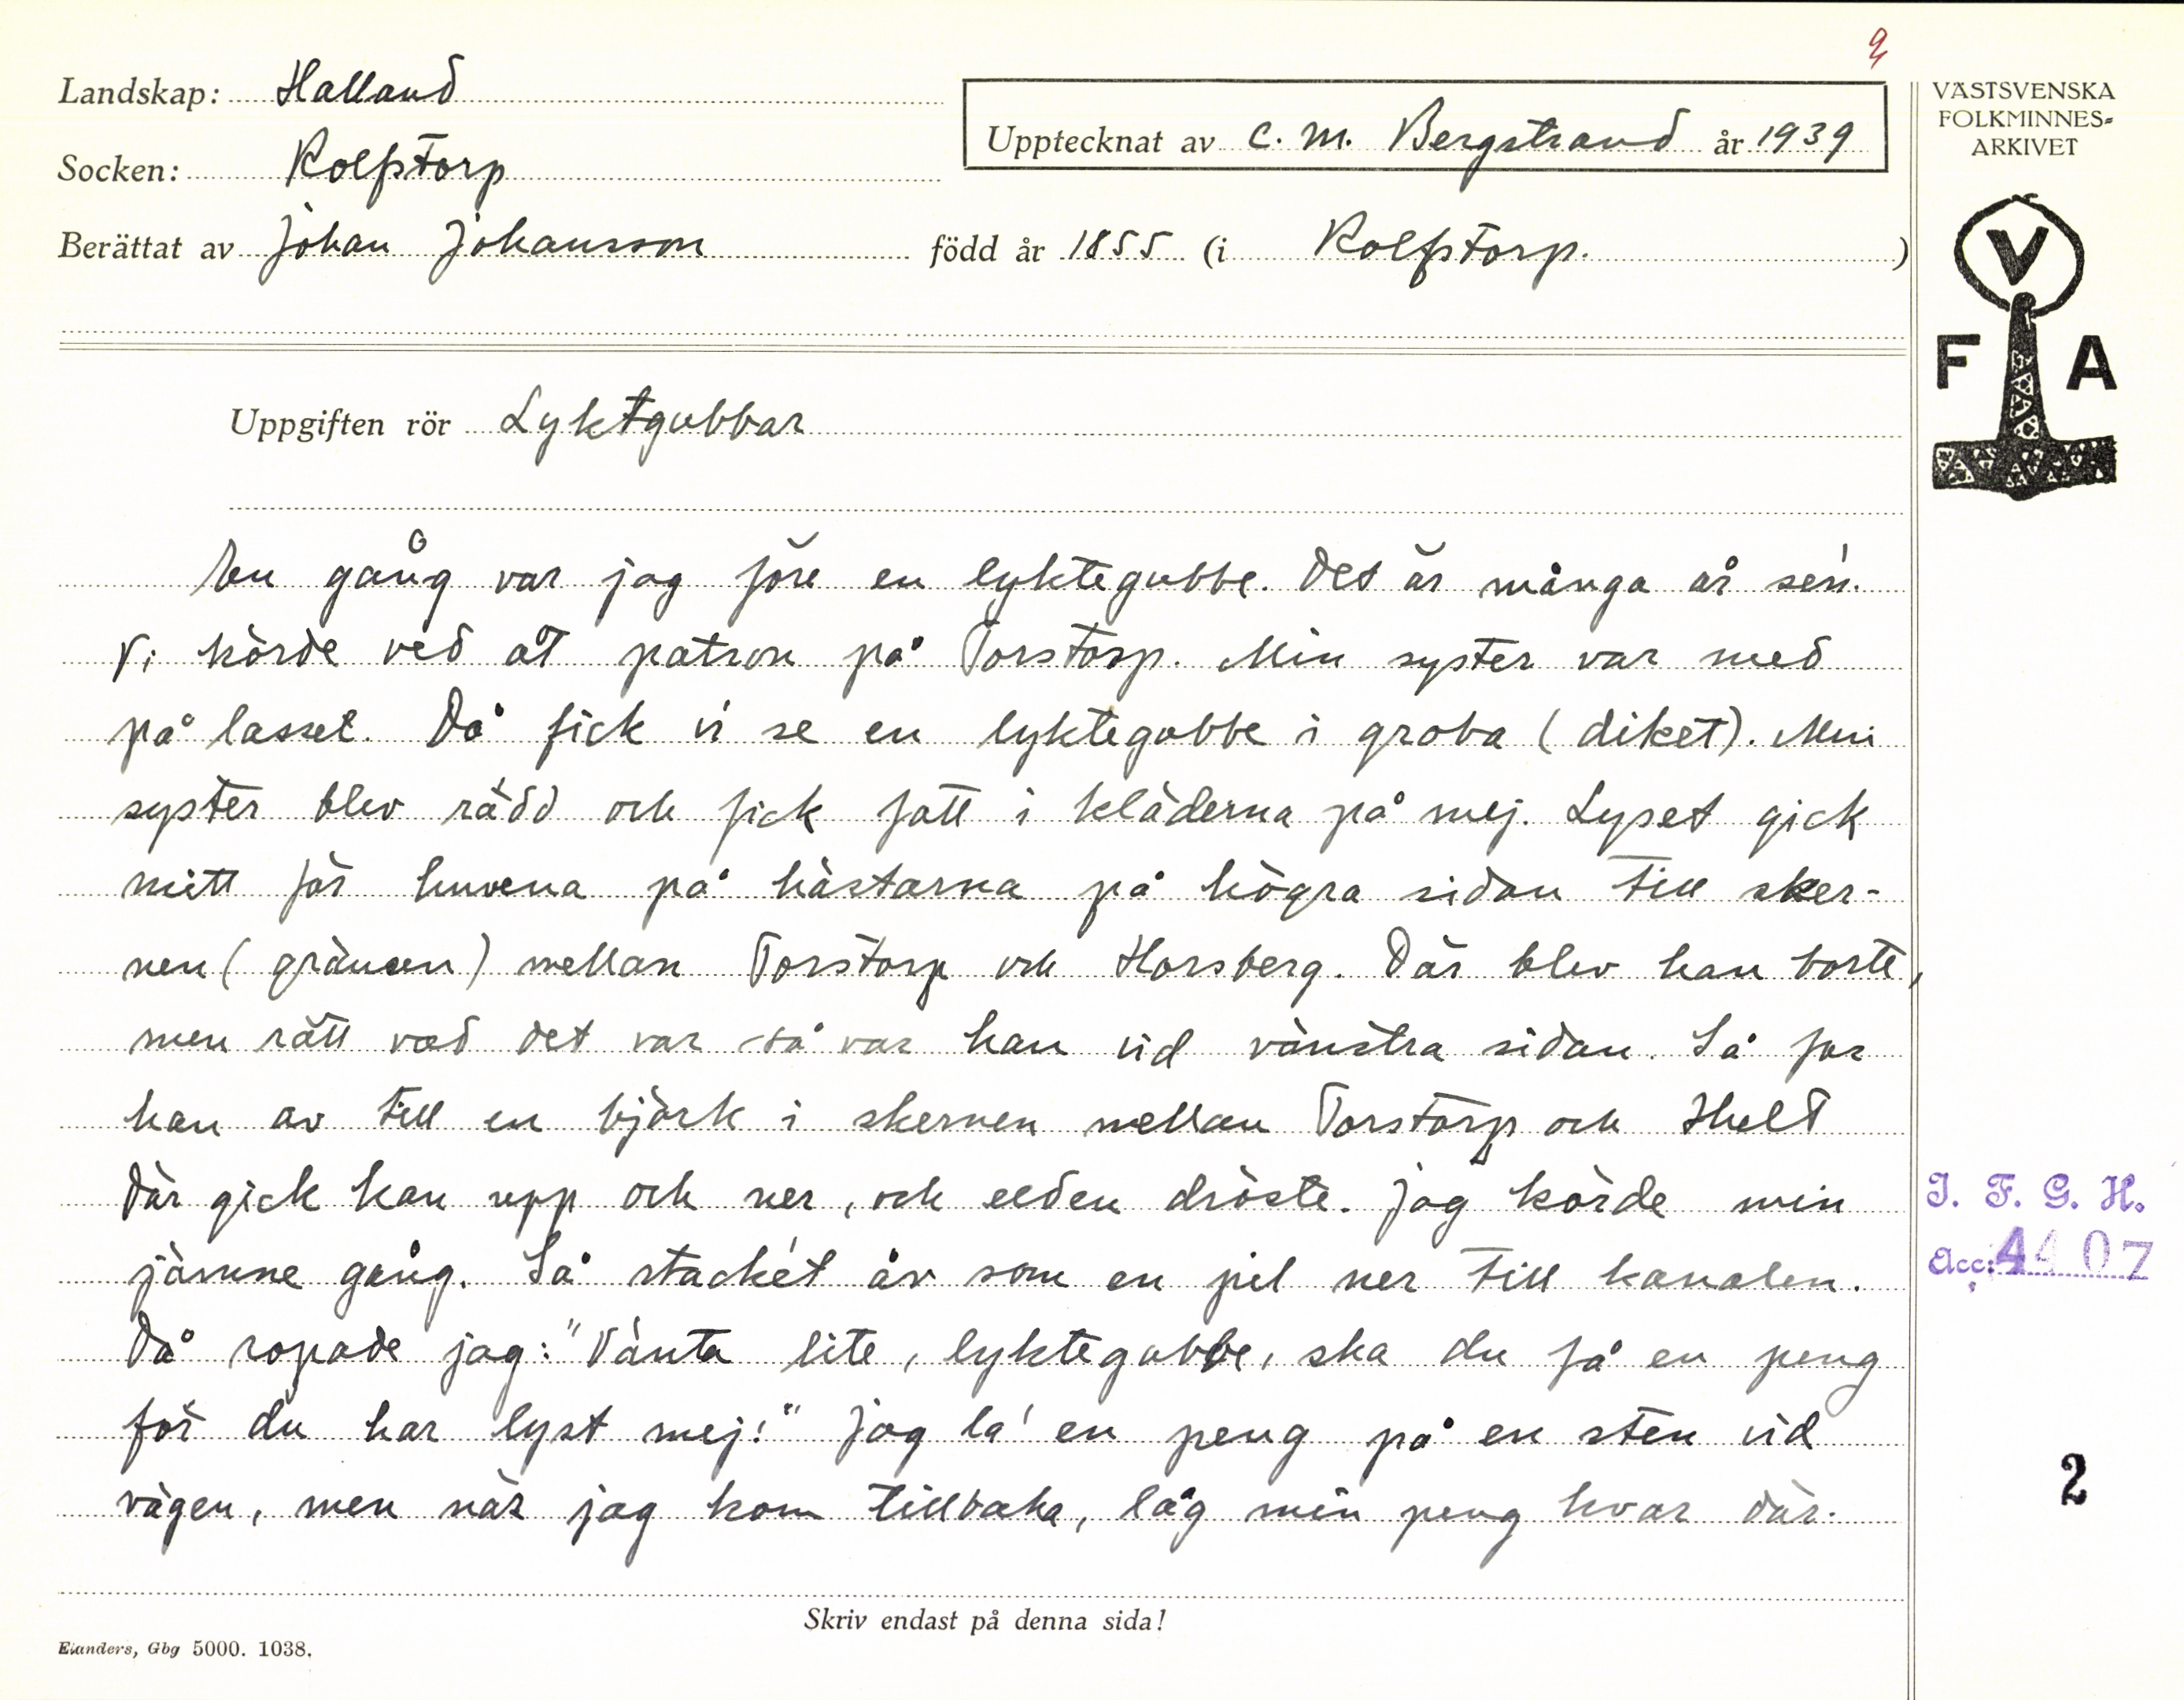 2
Landskap: Halland
Upptecknat av C. M. Bergstrand år 1939
Socken: Rolfstorp
Berättat av Johan Johansson född år 1855 (i Rolfstorp.)
VÄSTSVENSKA
FOLKMINNES-
ARKIVET
V
F A
Uppgiften rör Lyktgubbar
En gång var jag före en lyktegubbe. Det är många år sen.
Vi körde ved åt patron på Torstorp. Min syster var med
på lasset. Då fick vi se en lyktegubbe i groba (diket). Min
syster blev rädd och fick fatt i kläderna på mej. Lyset gick
mitt för huvena på hästarna på högra sidan till sker-
nen (gränsen) mellan Torstorp och Horsberg. Där blev han borte,
men rätt vad det var så var han vid vänstra sidan. Så for
han av till en björk i skernen mellan Torstorp och Hult
där gick han upp och ner, och elden dröste. Jag körde min
jämne gång. Så stack'et åv som en pil ner till kanalen.
Då ropade jag: "Vänta lite, lyktegubbe, ska du få en peng
för du har lyst mej!" Jag la' en peng på en sten vid
vägen, men när jag kom tillbaka, låg min peng kvar där.
I. F. G. H.
Acc: 4407
2
Skriv endast på denna sida!
Elanders, Gbg 5000. 1038.